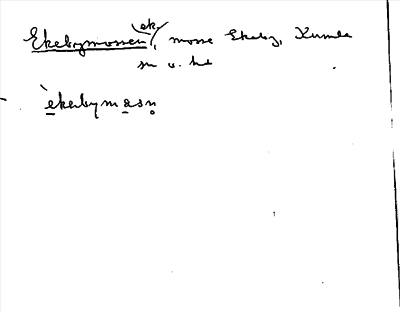 Ekebymossen, mosse Ekeby, Kumla
sn o. hd
ˋekebymåsn̥